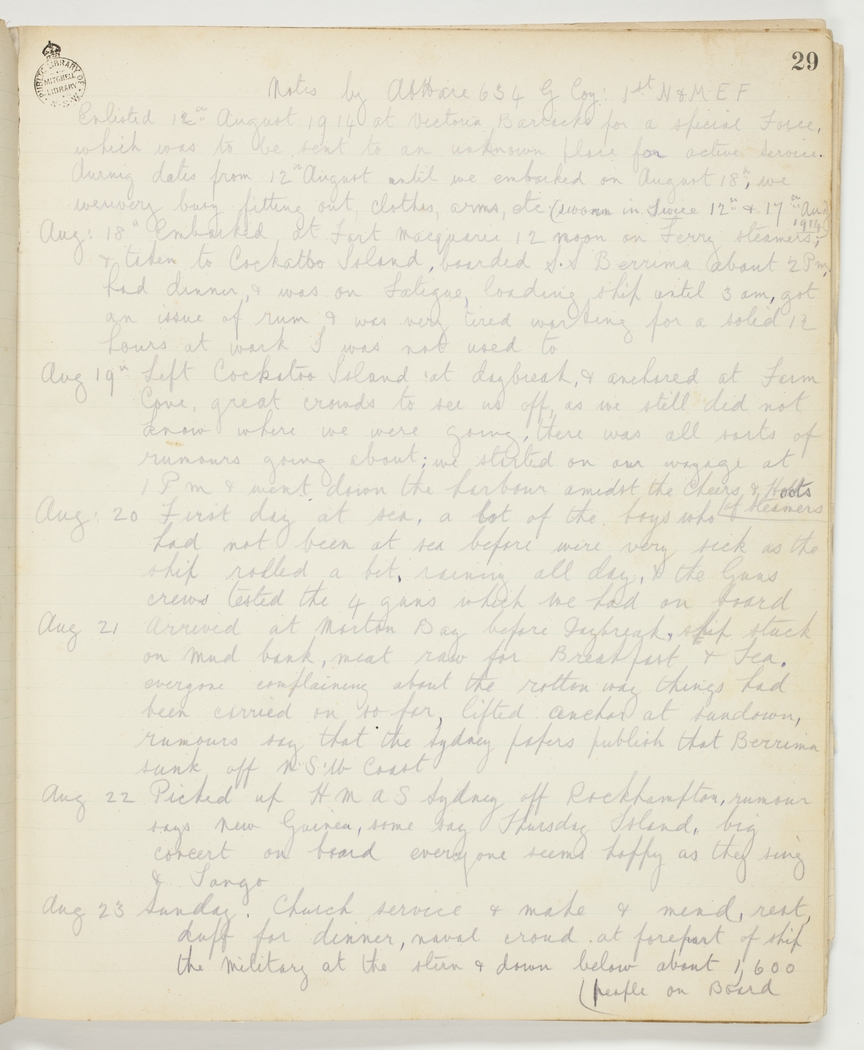 29
PUBLIC LIBRARY OF N.S.W.
MITCHELL LIBRARY
Notes by 634 G Coy: 1st N & M E F
Enlisted 12th August 1914 at Victoria Barracks for a special Force,
which was to be sent to an unknown place for active service.
during dates from 12th August until we embarked on August 18th, we
were very busy fitting out, clothes, arms, etc (sworn in twice 12th & 17th Aug
1914)
Aug: 18th Embarked at Fort Macquarie 12 noon on Ferry steamers,
& taken to Cockatoo Island, boarded S.S Berrima about 2 Pm,
had dinner, & was on Fatigue, loading ship until 3 am, got
an issue of rum & was very tired working for a solid 12
hours at work I was not used to
Aug 19th Left Cockatoo Island at daybreak, & anchored at Farm
Cove, great crowds to see us off, as we still did not
know where we were going, there was all sorts of
rumours going about; we started on our voyage at
1 P m & went down the harbour amidst the Cheers & Hoots
of steamers
Aug: 20 First day at sea, a lot of the boys who
had not been at sea before were very sick as the
ship rolled a bit, raining all day, & the Guns
crews tested the 4 guns which we had on board
Aug 21 Arrived at Morton Bay before Daybreak, ship stuck
on mud bank, meat raw for Breakfast & Tea.
everyone complaining about the rotton way things had
been carried on so far, lifted anchor at sundown,
rumours say that the Sydney papers publish that Berrima
sunk off N.S.W Coast
Aug 22 Picked up H M A S Sydney off Rockhampton, rumour
says New Guinea, some say Thursday Island, big
concert on board everyone seems happy as they sing
& Tango
Aug 23 Sunday. Church service & make & mend, rest,
duff for dinner, naval crowd at forepart of ship
the military at the stern & down below about 1,600
(people on Board